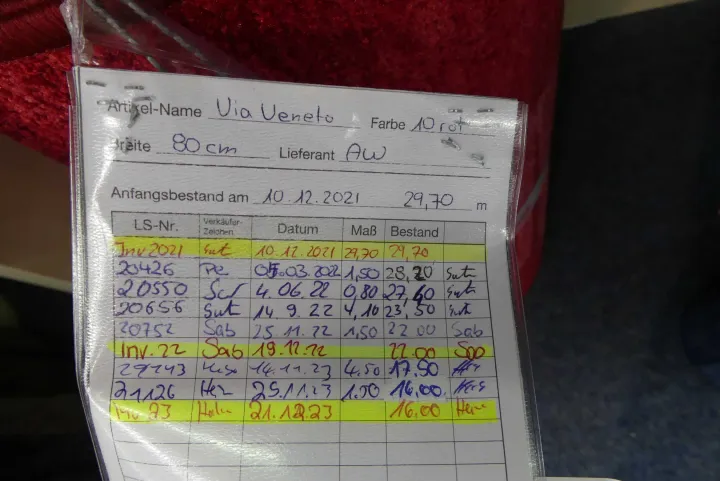 Artikel-Name Via Veneto Farbe 10 rot
Breite 80 cm Lieferant AW
Anfangsbestand am 10.12.2021 29,70 m
LS-Nr. Verkäufer-Zeichen Datum Maß Bestand
Inv 2021 Gut 10.12.2021 29,70 29,70
20426 Pe 05.03.2022 1,50 28,20 Gut
20550 4.06.22 0,80 27,40 Gut
20656 Gut 14.9.22 4,10 23,50 Gut
20752 Sab 25.11.22 1,50 22.00 Sab
Inv. 22 Sab 19.12.22 22.00 Sab
14.11.23 4.50 17.50
21126 25.11.23 16.00
Inv 23 21.12.23 16.00